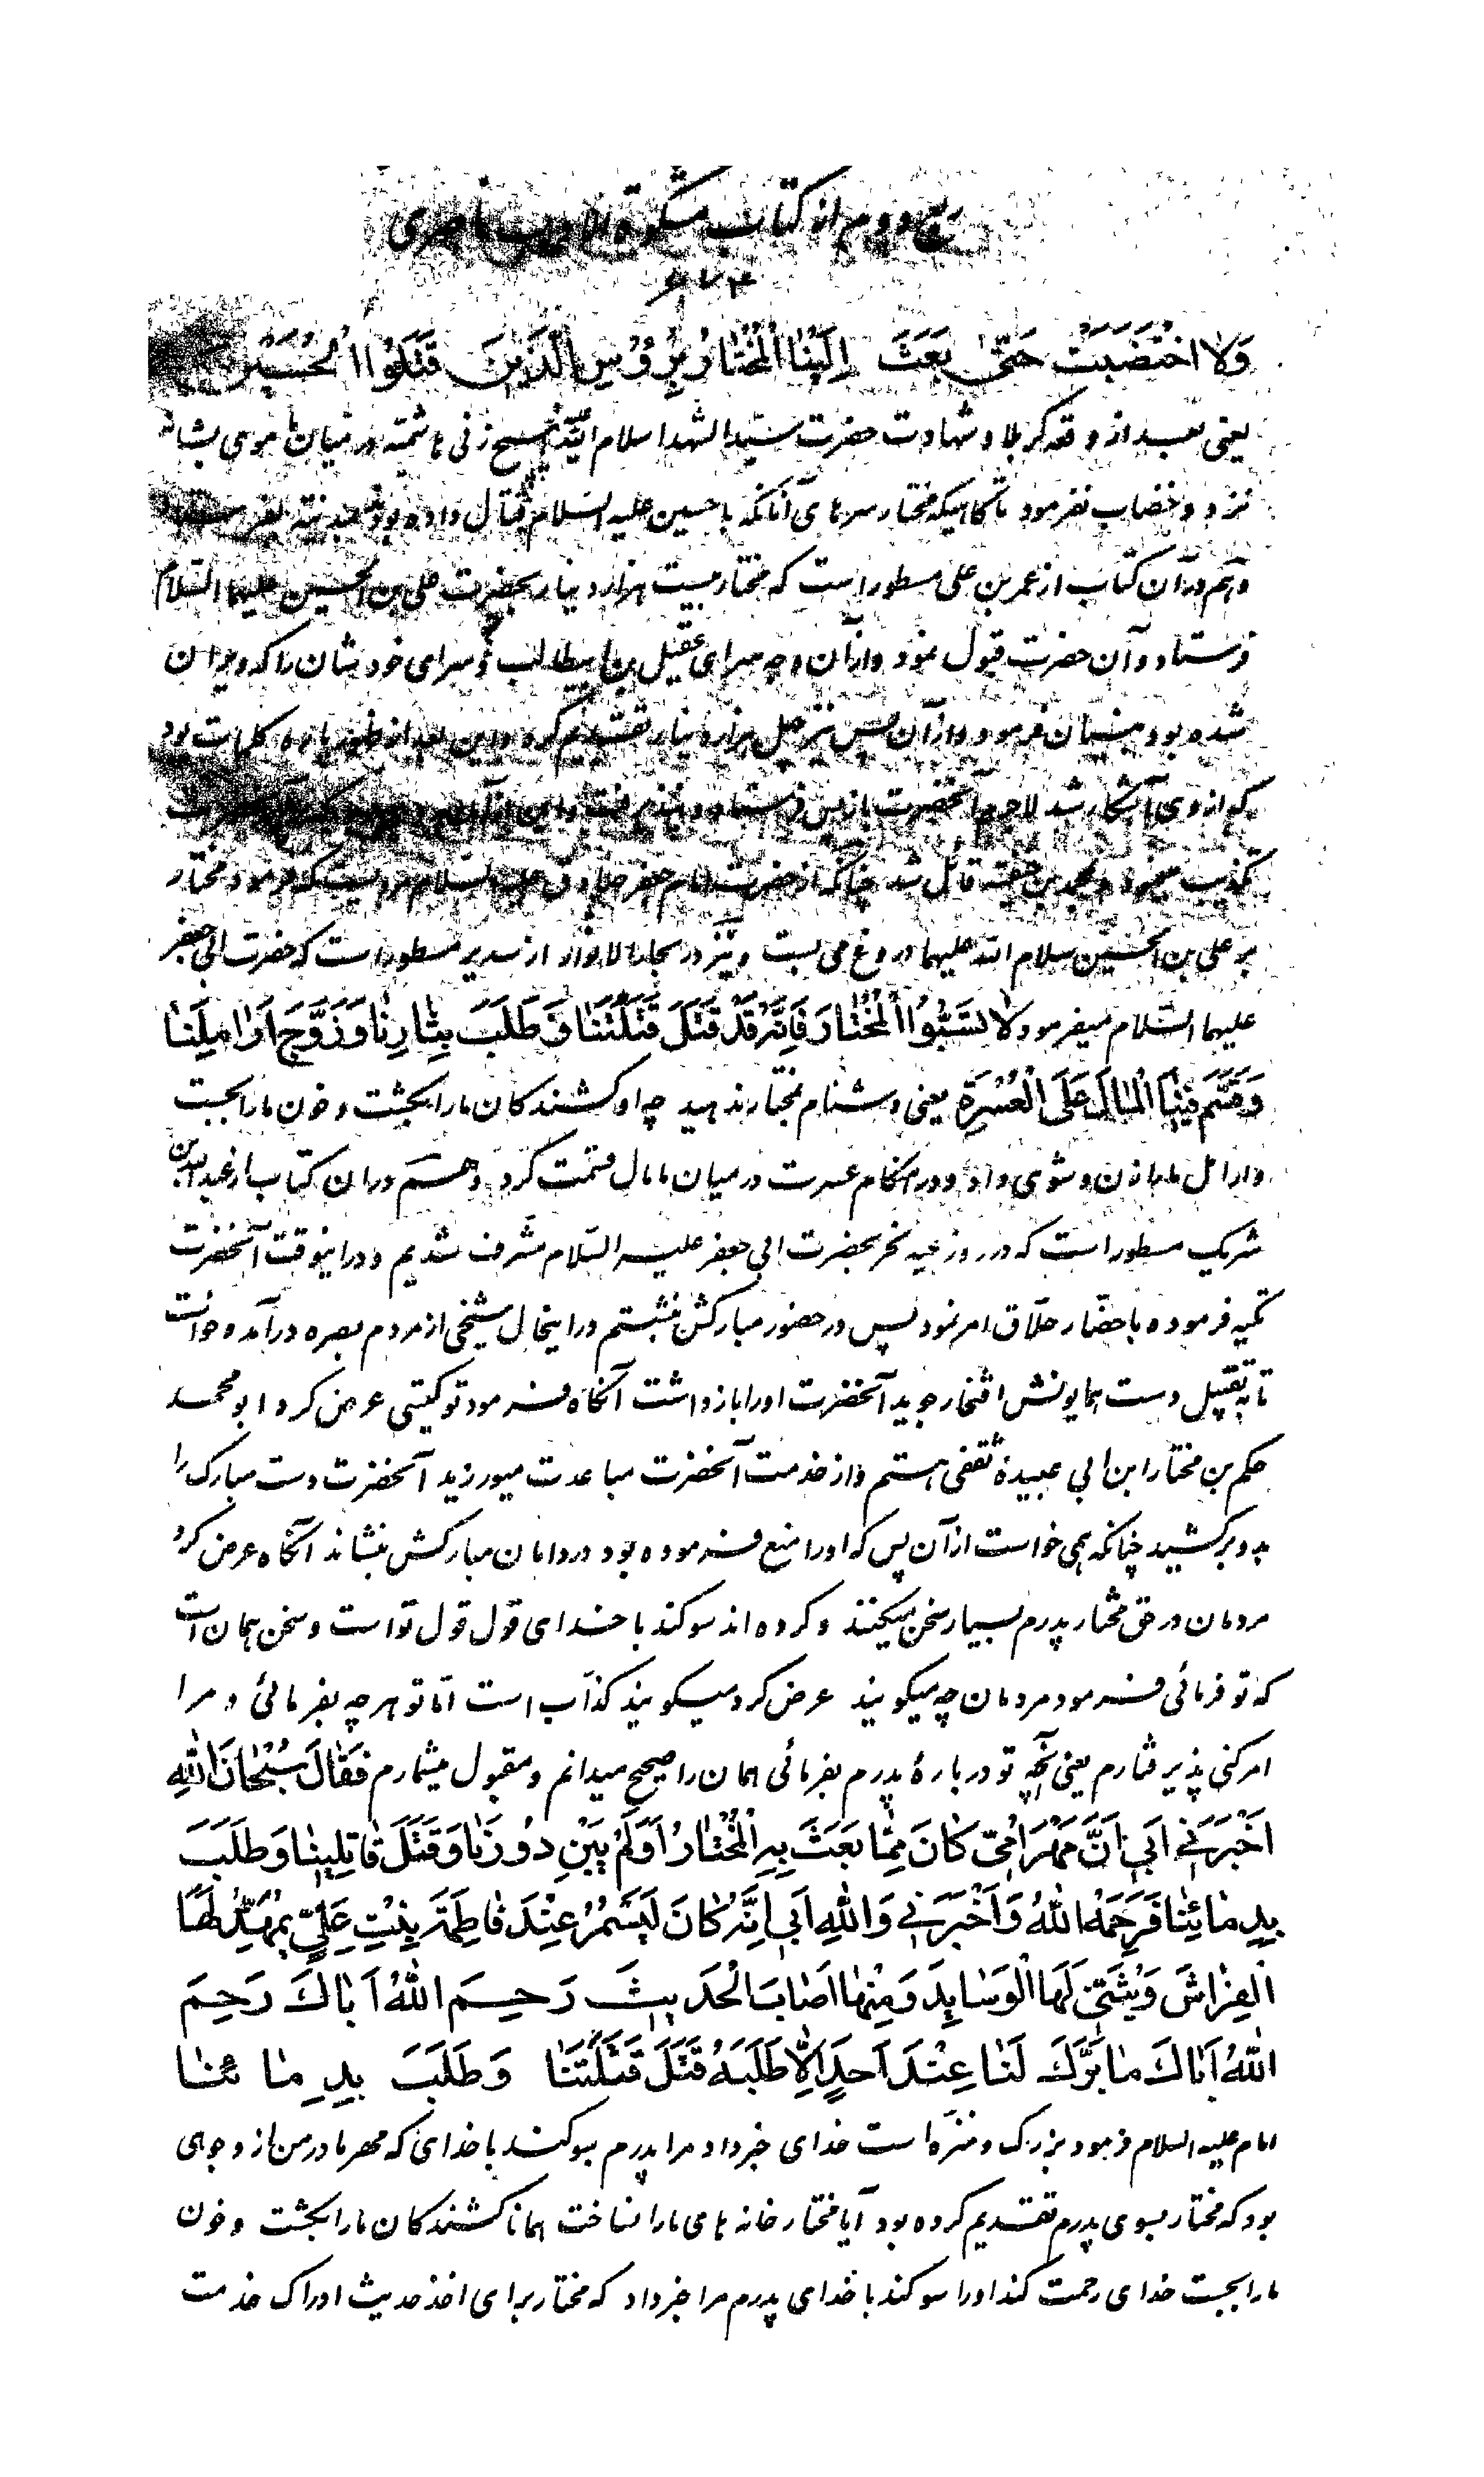 ربع دوم از کتاب مشکوة الادب ناصری
وَلَا اخْتَضَبَتْ حَتّىٰ بَعَثَ اِلَيْنَا الْمُخْتٰارُ بِرُؤُسِ الَّذينَ قَتَلُوا الْحُسَيْنَ
یعنی بعد از وقعه کربلا و شهادت حضرت سیّد الشهدا سلام اللّه علیه هیچ زنی هاشمیّه در میان ما موی بشانه
نزد و خضاب نفرمود تا گاهیکه مختار سرهای آنانکه با حسین علیه السّلام قتال داده بودند بمدینه بفرستاد
و هم در آن کتاب از عمر بن علی مسطور است که مختار بیست هزار دینار بحضرت علی بن الحسین علیهما السّلام
فرستاد و آن حضرت قبول نمود و از آن وجه سرای عقیل بن ابیطالب و سرای خودشان را که ویران
شده بود بنیان فرمود و از آن پس نیز چهل هزار دینار تقدیم کرد و این بعد از ظهور پاره کلمات بود
که از وی آشکار شد لاجرم آنحضرت باز پس فرستاد و نپذیرفت و این از آن
تکذیب میفرمود و محمد بن حنفیّه قائل شد چنانکه از حضرت امام جعفر صادق علیه السّلام مرویست که فرمود مختار
بر علی بن الحسین سلام اللّه علیهما دروغ می بست و نیز در بحار الانوار از سدیر مسطور است که حضرت ابی جعفر
علیهما السّلام میفرمود لٰا تَسُبُّوا الْمُخْتٰارَ فَاِنَّهُ قَدْ قَتَلَ قَتَلَتَنٰا وَ طَلَبَ بِثٰارِنٰا وَ زَوَّجَ اَرٰامِلَنٰا
وَ قَسَّمَ فِيْنَا الْمٰالَ عَلَى الْعُسْرَةِ یعنی دشنام بمختار ندهید چه او کشندگان ما را بکشت و خون ما را بجست
و ارامل ما را زن و شوی داد و در هنگام عسرت در میان ما مال قسمت کرد و هم در ان کتاب از عبد اللّه بن
شریک مسطور است که در روز عید نحر بحضرت ابی جعفر علیه السّلام مشرف شدیم و در اینوقت آنحضرت
تکیه فرموده باحضار حلّاق امر نمود پس در حضور مبارکش بنشستم در اینحال شیخی از مردم بصره درآمد و خواست
تا بتقبیل دست همایونش افتخار جوید آنحضرت او را باز داشت آنگاه فرمود تو کیستی عرض کرد ابو محمد
حکم بن مختار ابن ابی عبیدهٔ ثقفی هستم و از خدمت آنحضرت مباعدت میورزید آنحضرت دست مبارک را
بدو برکشید چنانکه همی خواست از آن پس که او را منع فرموده بود در دامان مبارکش بنشاند آنگاه عرض کرد
مردمان در حق مختار پدرم بسیار سخن میکنند و کرده اند سوگند با خدای قول قول تو است و سخن همان است
که تو فرمائی فرمود مردمان چه میگویند عرض کرد میگویند کذّاب است امّا تو هر چه بفرمائی و مرا
امر کنی پذیرفتارم یعنی آنچه تو در بارهٔ پدرم بفرمائی همان را صحیح میدانم و مقبول میشمارم فَقٰالَ سُبْحٰانَ اللّٰهِ
اَخْبَرَنِي اَبي اَنَّ مَهْرَ اُمّي كٰانَ مِمّٰا بَعَثَ بِهِ الْمُخْتٰارُ اَوَلَمْ يَبْنِ دُوْرَنٰا وَ قَتَلَ قٰاتِلينٰا وَ طَلَبَ
بِدِمٰائِنٰا فَرَحِمَهُ اللّٰهُ وَ اَخْبَرَنِي وَ اللّٰهِ اَبي اِنَّهُ كٰانَ لَيَسْمُرُ عِنْدَ فٰاطِمَةَ بِنْتِ عَلِيٍّ يُمَهِّدُ لَهَا
الْفِرٰاشَ وَ يُثْنِي لَهَا الْوَسٰايِدَ وَ مِنْهٰا اَصٰابَ الْحَديثَ رَحِمَ اللّٰهُ اَبٰاكَ رَحِمَ
اللّٰهُ اَبٰاكَ مٰا تَرَكَ لَنٰا عِنْدَ اَحَدٍ اِلّٰا طَلَبَهُ قَتَلَ قَتَلَتَنٰا وَ طَلَبَ بِدِمٰائِنٰا
امام علیه السلام فرمود بزرگ و منزّه است خدای خبر داد مرا پدرم سوگند با خدای که مهر مادر من از وجوهی
بود که مختار بسوی پدرم تقدیم کرده بود آیا مختار خانه های ما را نساخت همانا کشندگان ما را بکشت و خون
ما را بجست خدای رحمت کند او را سوگند با خدای پدرم مرا خبر داد که مختار برای اخذ حدیث ادراک خدمت